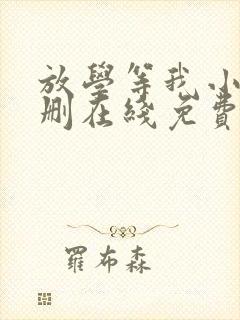 放學等我小
刪在綫免費
羅布森